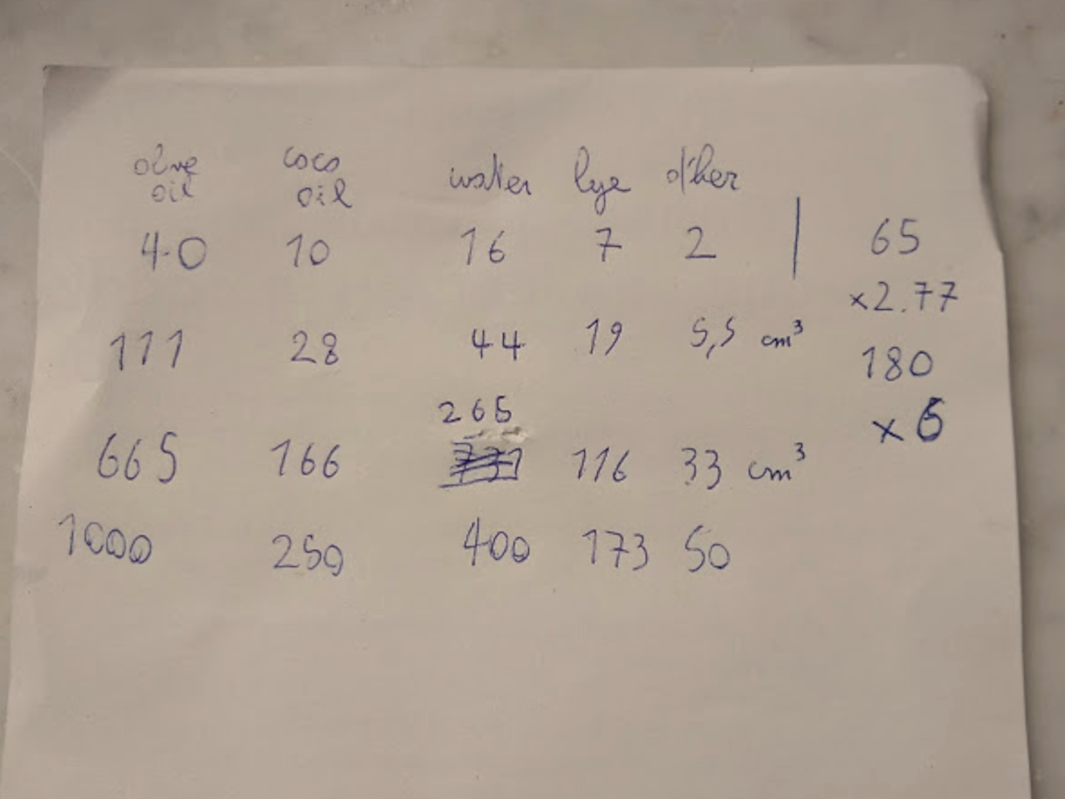 olive coco water lye other
oil oil
40 10 16 7 2 | 65
×2.77
111 28 44 19 5,5 cm³ 180
265 ×6
665 166 116 33 cm³
1000 250 400 173 50